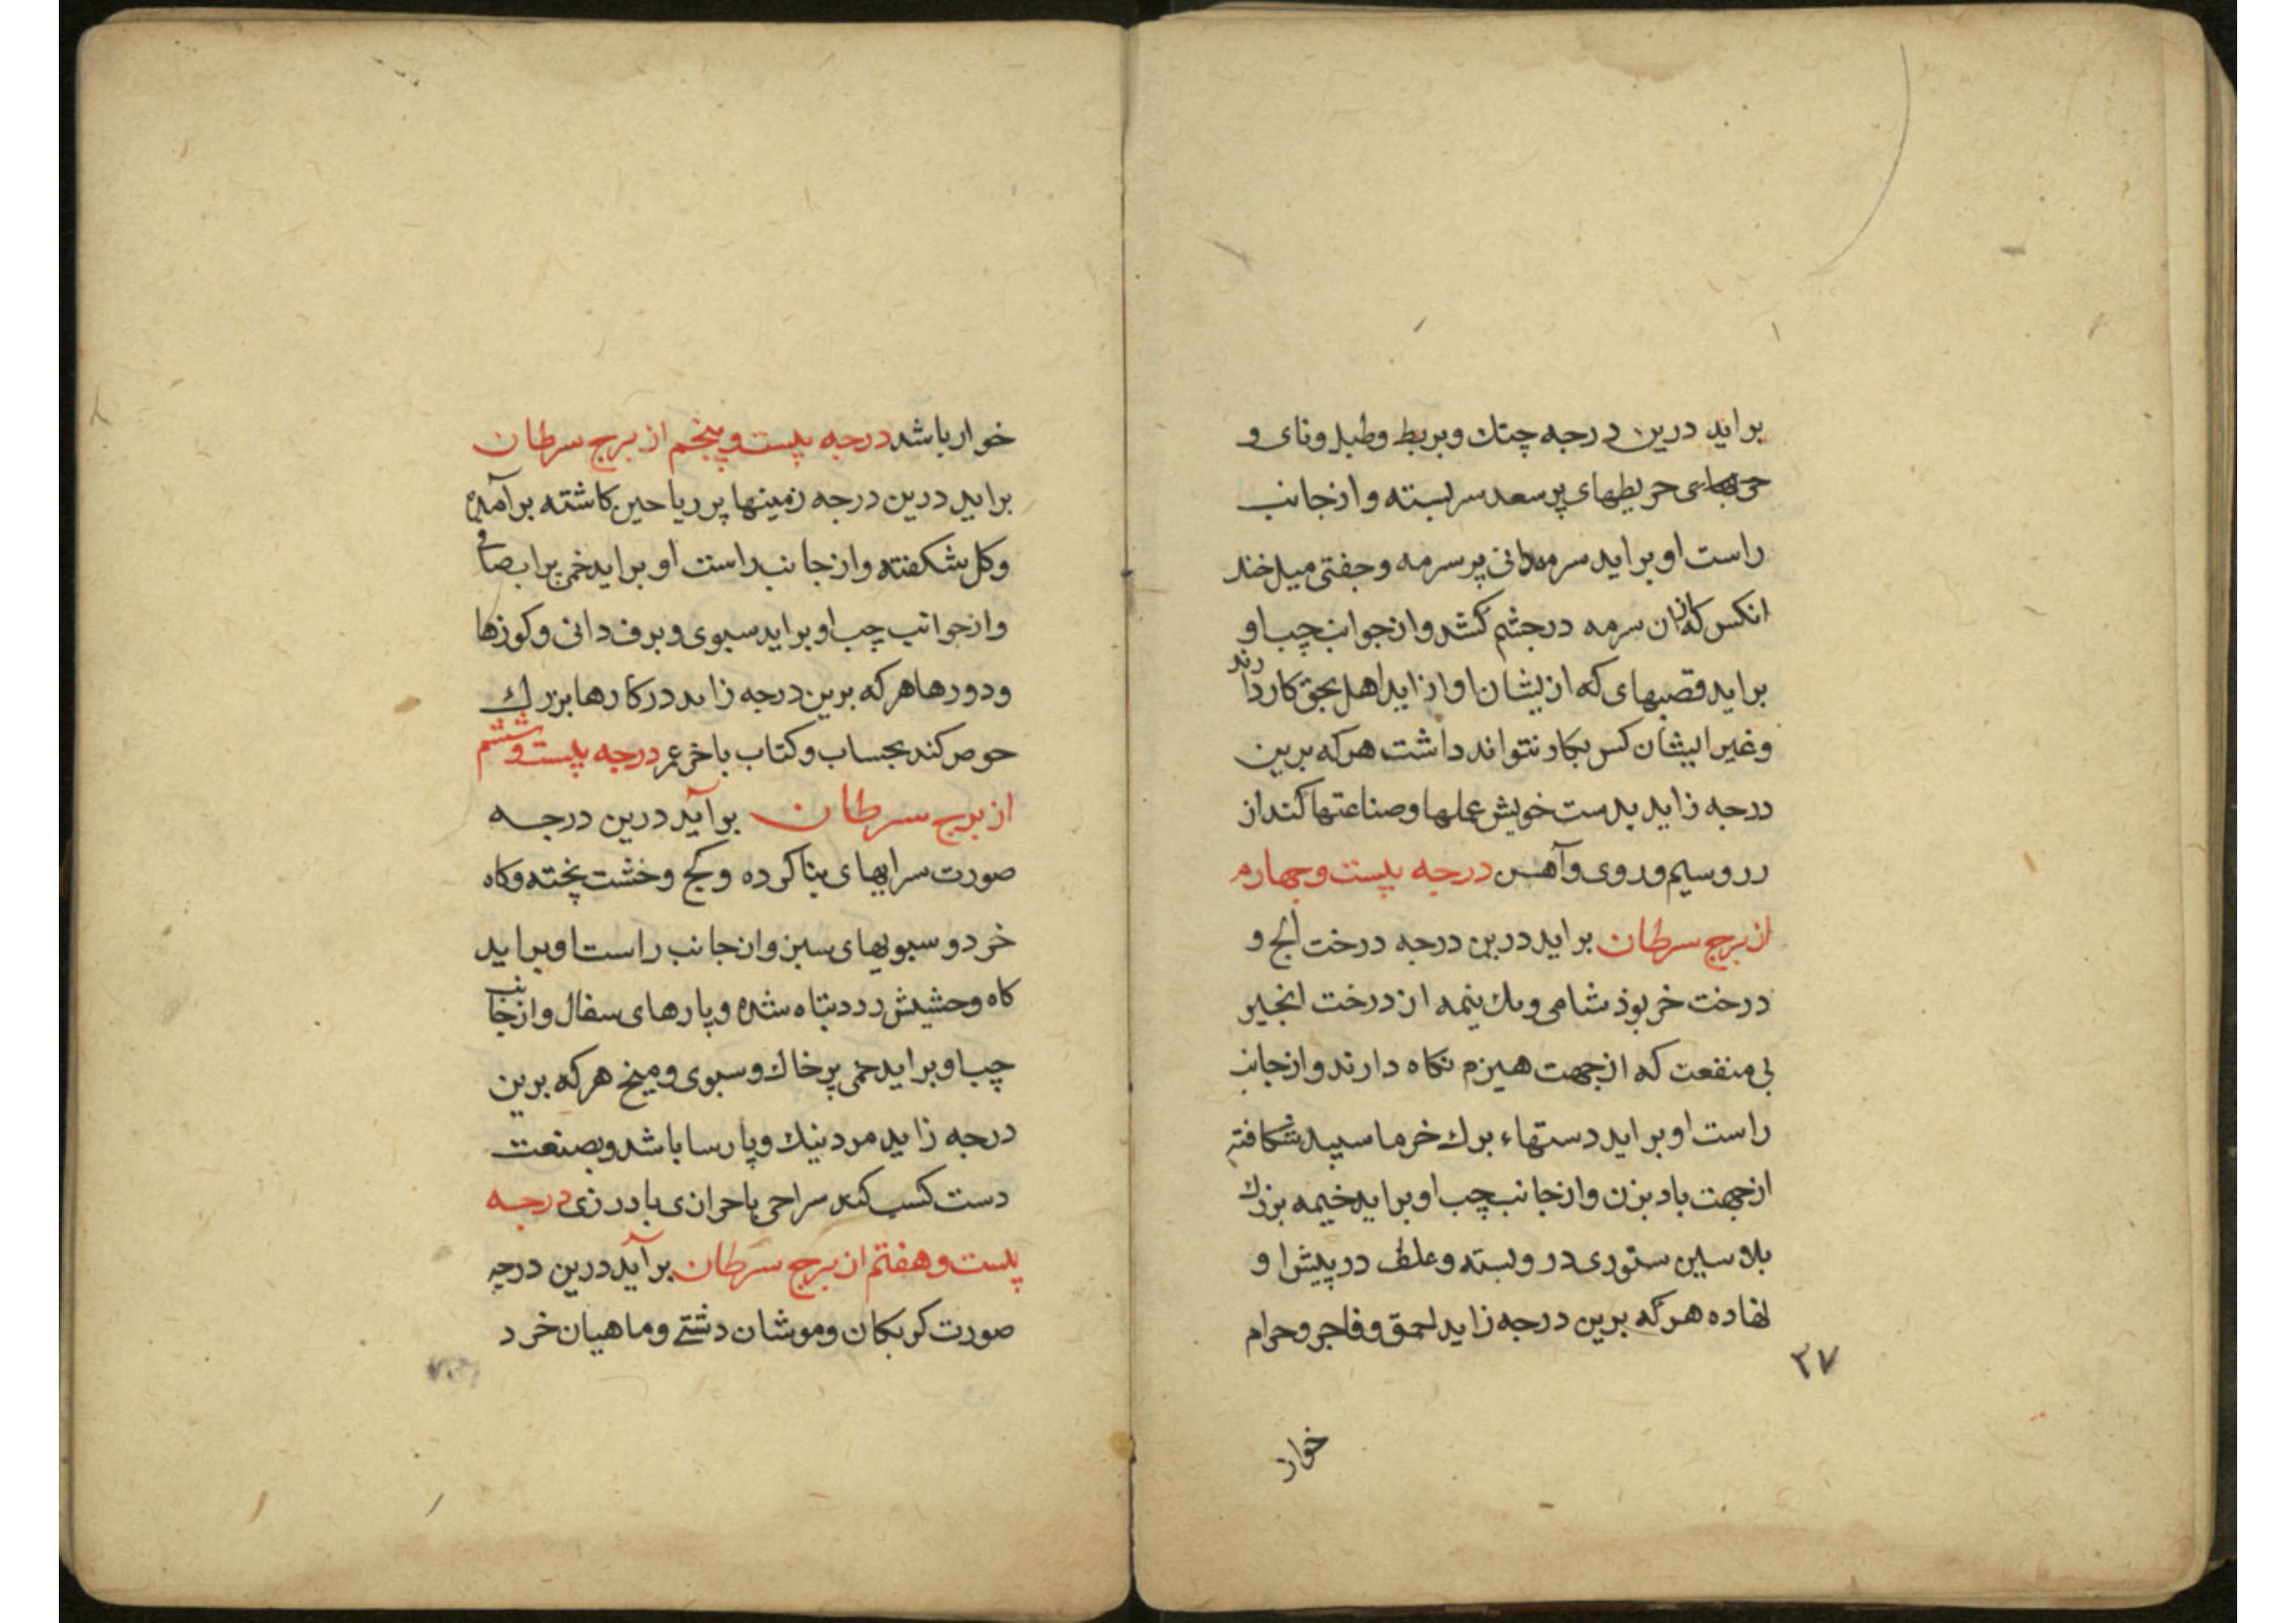 براید درین درجه چنك و بربط وطبل ونای و
حریطهای پر سعد سر بسته وازجانب
راست او براید سرمه‌دانی پر سرمه وجفتی میل خند
انکس که ازان سرمه درجشم کشد وازجوانب چب او
براید قصبهای که ازیشان اواز اید اهل بحق کار دارند
وغیر ایشان کس بکار نتواند داشت هرکه برین
درجه زاید بدست خویش عملها وصناعتها کند از
زر وسیم وروی وآهن درجه بیست وچهارم
از برج سرطان براید درین درجه درخت و
درخت خربوذ شامی ویك نیمه از درخت انجیر
بی منفعت که ازجهت هیزم نکاه دارند وازجانب
راست او براید دستهاء برك خرما سپید شکافته
ازجهت بادبزن وازجانب چب او براید خیمه بزرك
ستوری درو بسته وعلف در پیش او
نهاده هرکه برین درجه زاید احمق وفاجر وحرام
۲۷
خوار
خوار باشد درجه بیست وپنجم از برج سرطان
براید درین درجه زمینها پر ریاحین کاشته برآمده
وکل شکفته وازجانب راست او براید خمی پر اب صافی
وازجوانب چب او براید سبوی وبرف دانی وکوزها
ودورها هرکه برین درجه زاید درکارها بزرك
حوص کند بحساب وکتاب باخر عمر درجه بیست وششم
از برج سرطان برآید درین درجه
صورت سرایهای بنا کرده وکج وخشت پخته وکاه
خرد و سبویهای سبز وازجانب راست او براید
کاه وحشیش زرد تباه شده وپارهای سفال وازجانب
چب او براید خمی پر خاك وسبوی ومیخ هرکه برین
درجه زاید مرد نیك وپارسا باشد وبصنعت
دست کسب کند سراجی یا حرازی یا درزی درجه
بیست وهفتم از برج سرطان برآید درین درجه
صورت کربکان وموشان دشتی وماهیان خرد